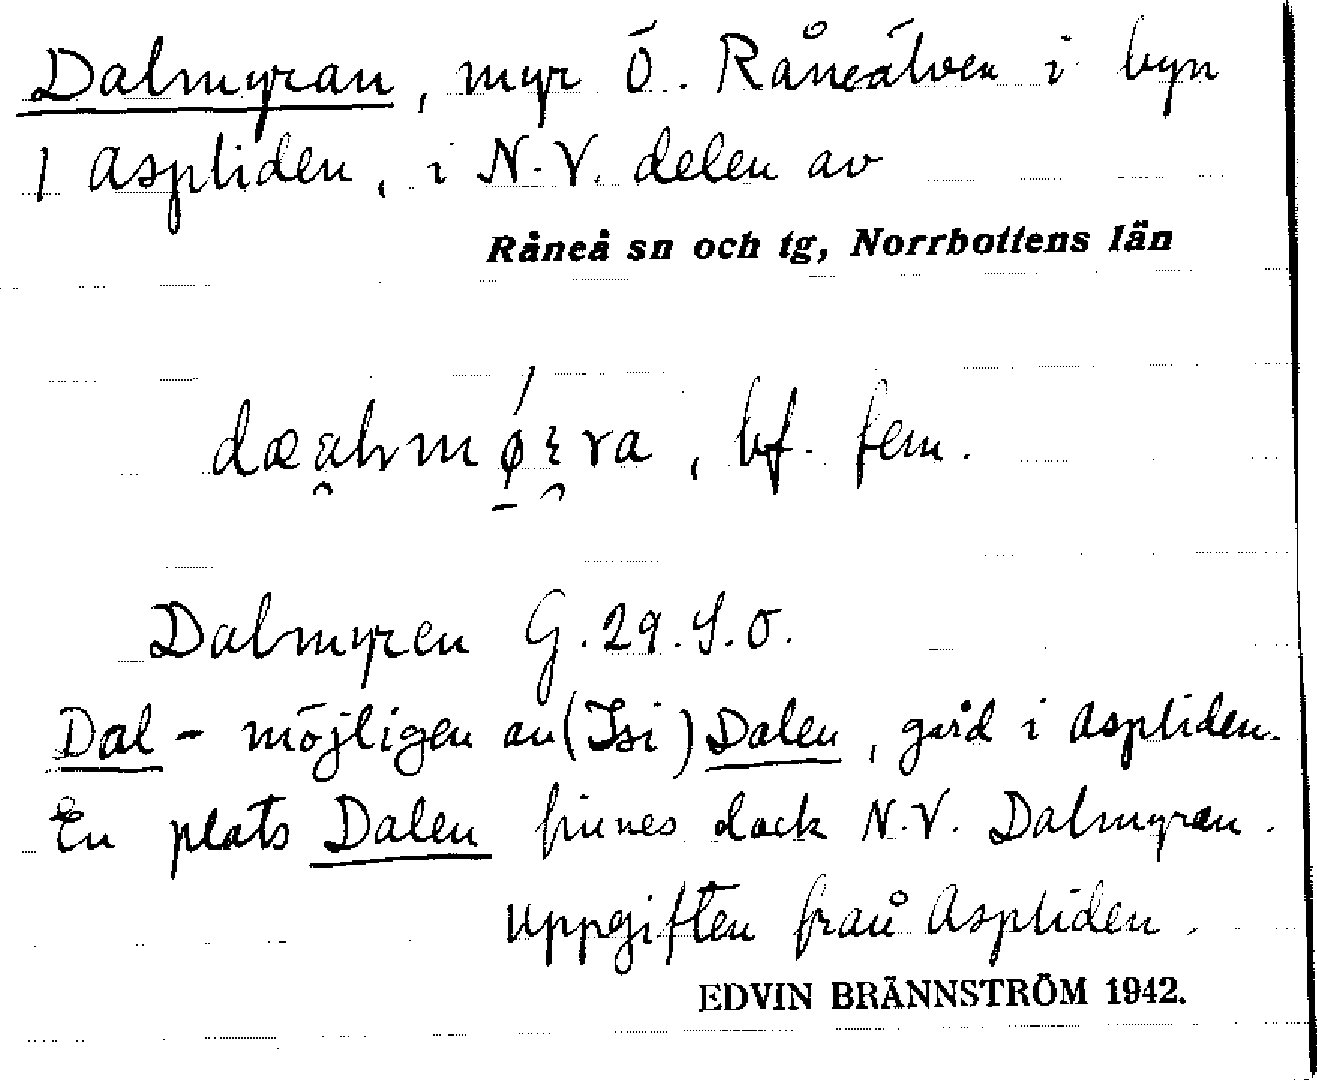 Dalmyran, myr Ö. Råneälven i byn
1 Aspliden, i N.V. delen av
Råneå sn och tg, Norrbottens län
bf. fem.
Dalmyren G.29.S.O.
Dal- möjligen au (Isi) Dalen, gård i Aspliden.
En plats Dalen finnes dock N.V. Dalmyran.
Uppgiften från Aspliden.
EDVIN BRÄNNSTRÖM 1942.